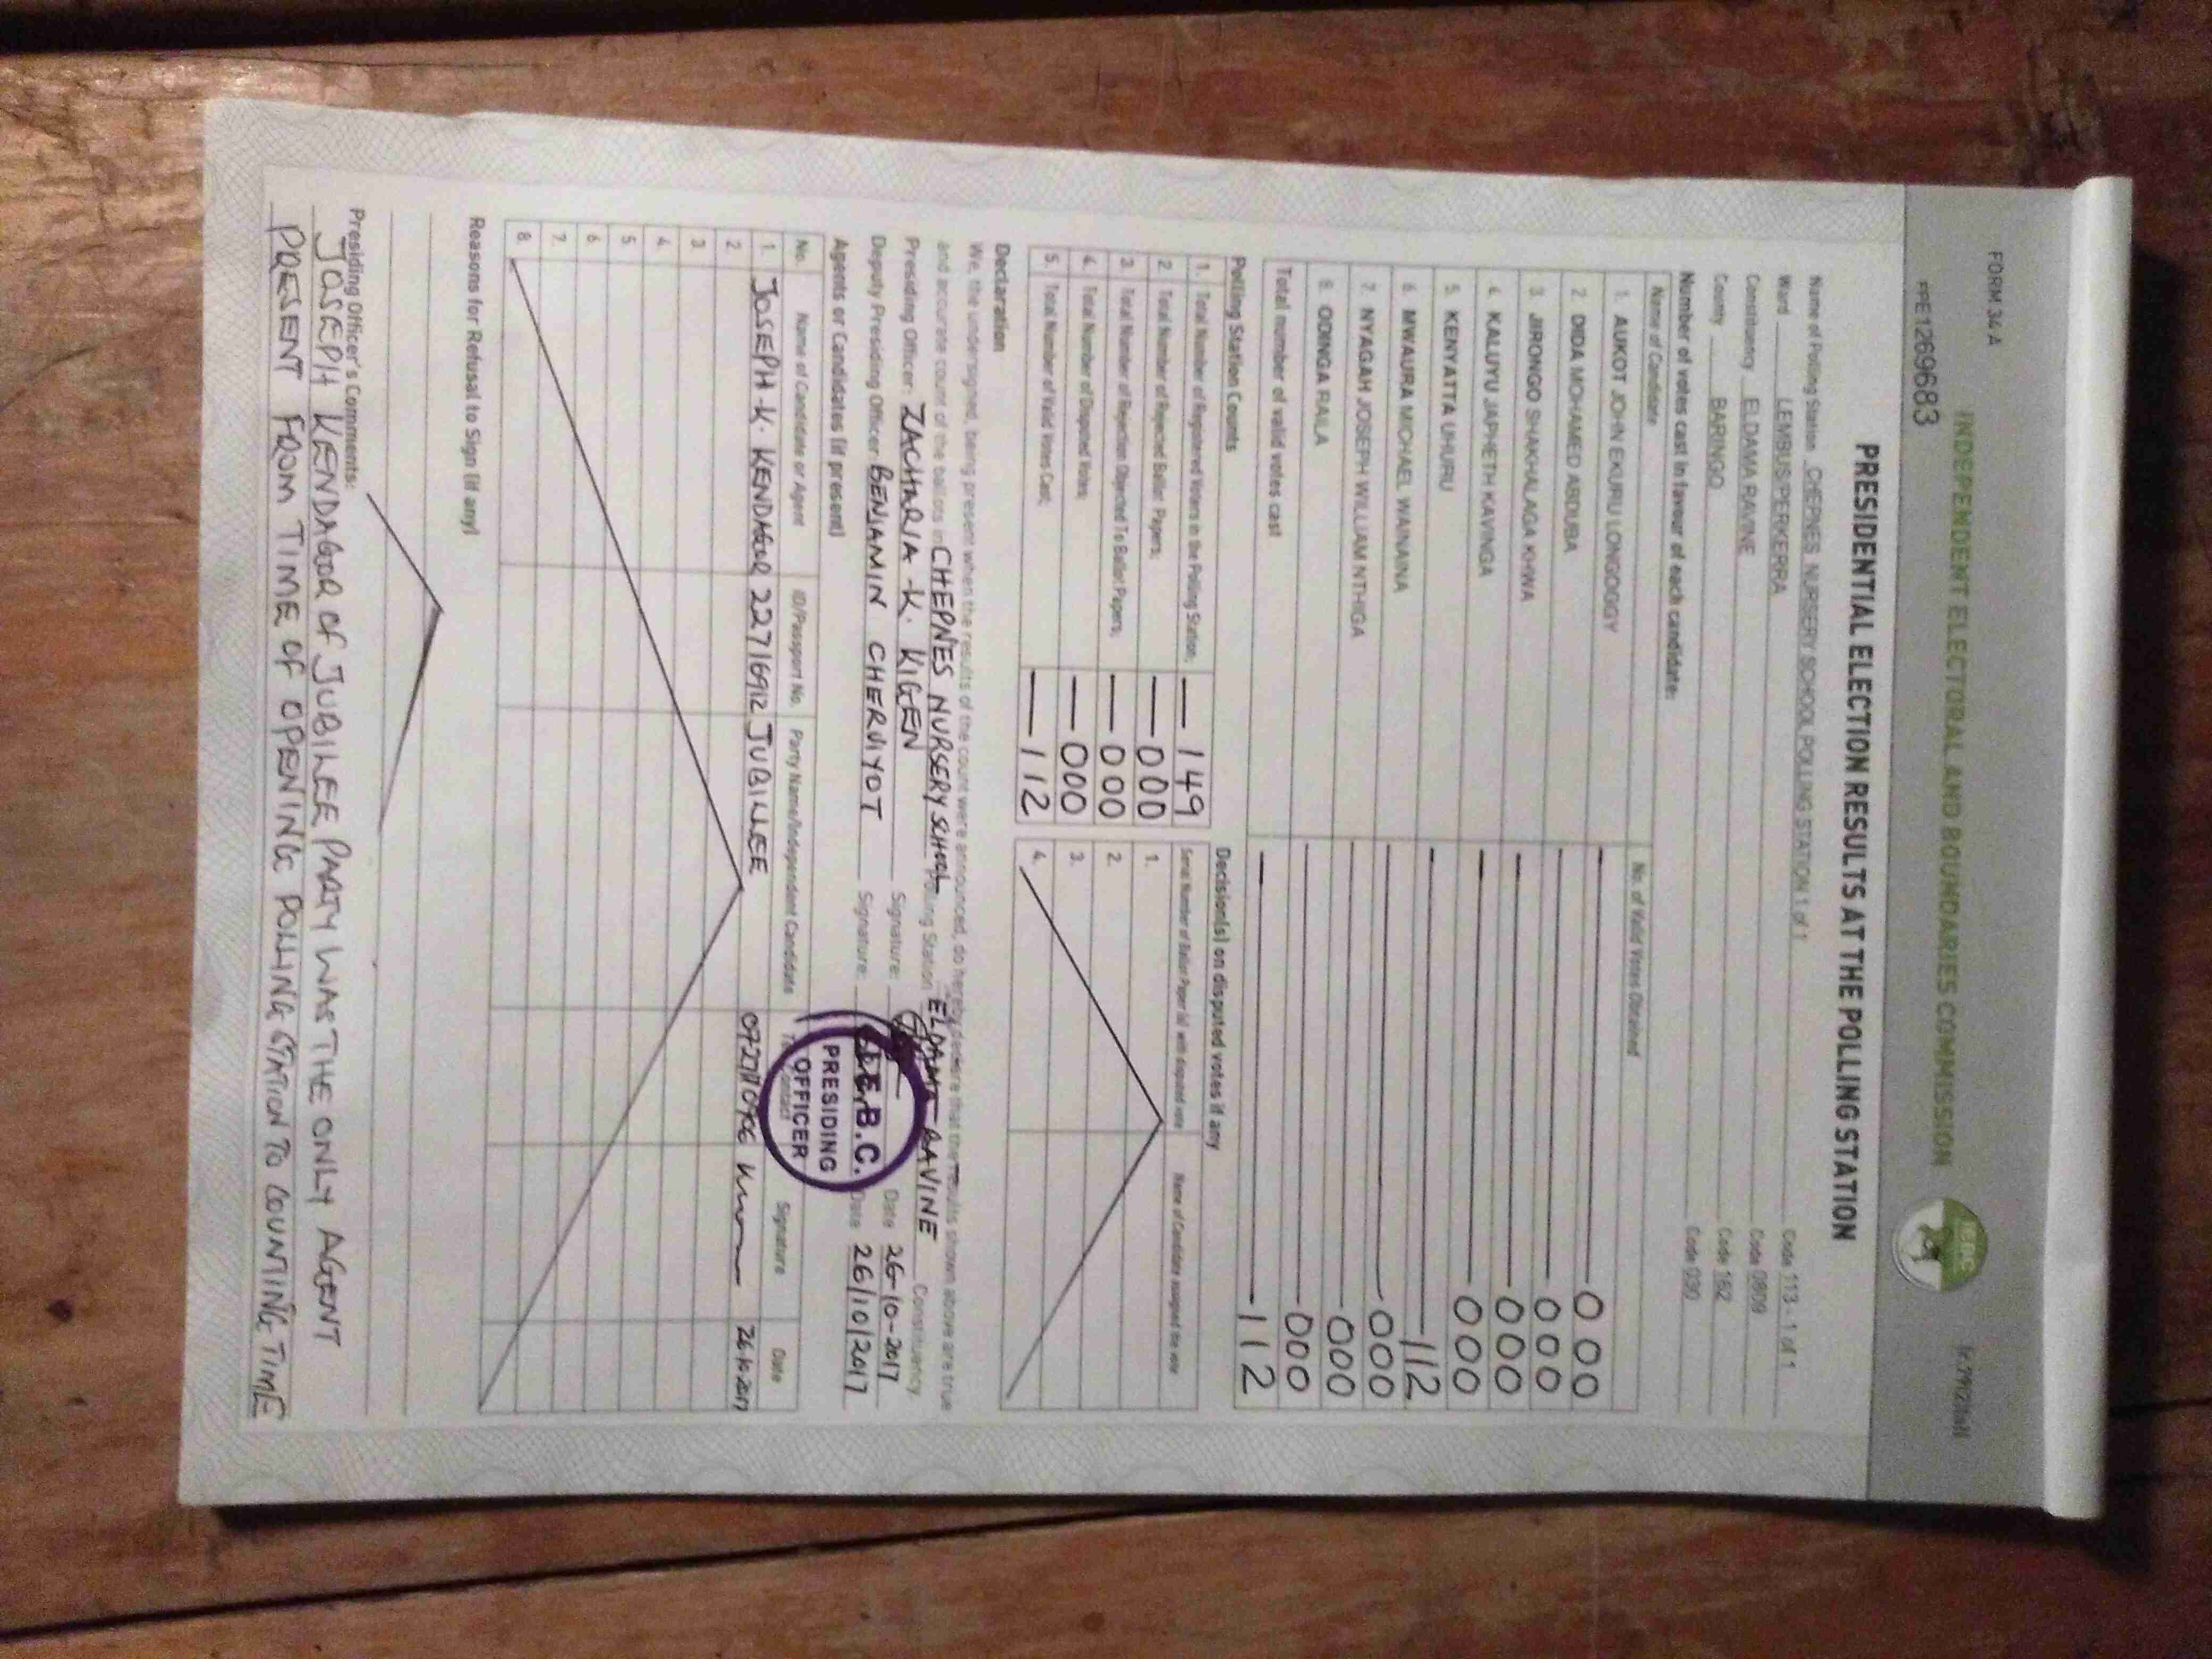 FORM 34 A
INDEPENDENT ELECTORAL AND BOUNDARIES COMMISSION
PPE1269683
PRESIDENTIAL ELECTION RESULTS AT THE POLLING STATION
Name of Polling Station CHEPNES NURSERY SCHOOL POLLING STATION 1 of 1 Code 113 - 1 of 1
Ward LEMBUS/PERKERRA Code 0809
Constituency ELDAMA RAVINE Code 162
County BARINGO Code 030
Number of votes cast in favour of each candidate:
Name of Candidate No. of Valid Votes Obtained
1. AUKOT JOHN EKURU LONGOGGY 000
2. DIDA MOHAMED ABDUBA 000
3. JIRONGO SHAKHALAGA KHWA 000
4. KALUYU JAPHETH KAVINGA 000
5. KENYATTA UHURU 112
6. MWAURA MICHAEL WAINAINA 000
7. NYAGAH JOSEPH WILLIAM NTHIGA 000
8. ODINGA RAILA 000
Total number of valid votes cast 112
Polling Station Counts
1. Total Number of Registered Voters in the Polling Station; 149
2. Total Number of Rejected Ballot Papers; 000
3. Total Number of Rejection Objected To Ballot Papers; 000
4. Total Number of Disputed Votes; 000
5. Total Number of Valid Votes Cast; 112
Decision(s) on disputed votes if any
Serial Number of Ballot Paper (s) with disputed vote Name of Candidate assigned the vote
1.
2.
3.
4.
Declaration
We, the undersigned, being present when the results of the count were announced, do hereby declare that the results shown above are true
and accurate count of the ballots in CHEPNES NURSERY SCHOOL Polling Station ELDAMA RAVINE Constituency
Presiding Officer: ZACHARIA -K. KIGEN Signature: Date 26-10-2017
Deputy Presiding Officer: BENJAMIN CHERUIYOT Signature: Date 26/10/2017
I.E.B.C.
PRESIDING
OFFICER
Agents or Candidates (if present)
No. Name of Candidate or Agent ID/Passport No. Party Name/Independent Candidate Tel Contact Signature Date
1. JOSEPH K. KENDAGOR 22716912 JUBILEE 26.10.2017
2.
3.
4.
5.
6.
7.
8.
Reasons for Refusal to Sign (if any)
Presiding Officer's Comments:
JOSEPH KENDAGOR OF JUBILEE PARTY WAS THE ONLY AGENT
PRESENT FROM TIME OF OPENING POLLING STATION TO COUNTING TIME